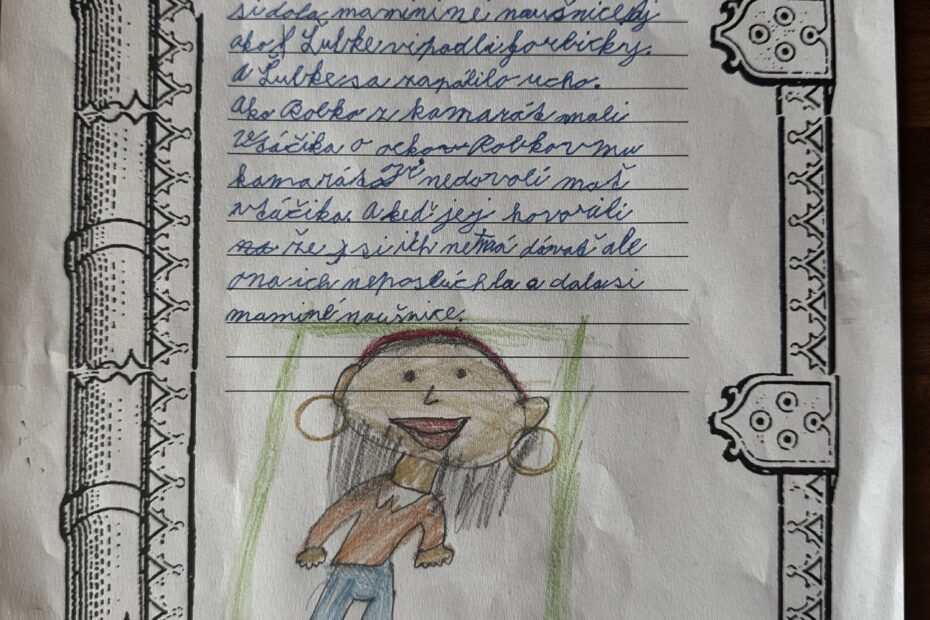 si dala maminine naušnice. Aj
ako Ľubke vipadli forbičky.
A Ľubke sa zapálilo ucho.
Ako Robko z kamarát mali
vtáčika o ockov Robkov mu
kamaráta nedovolí mať
vtáčika. A keď jej hovorili
že si ich nemá dávať ale
ona ich neposlúchla a dala si
maminé naušnice.